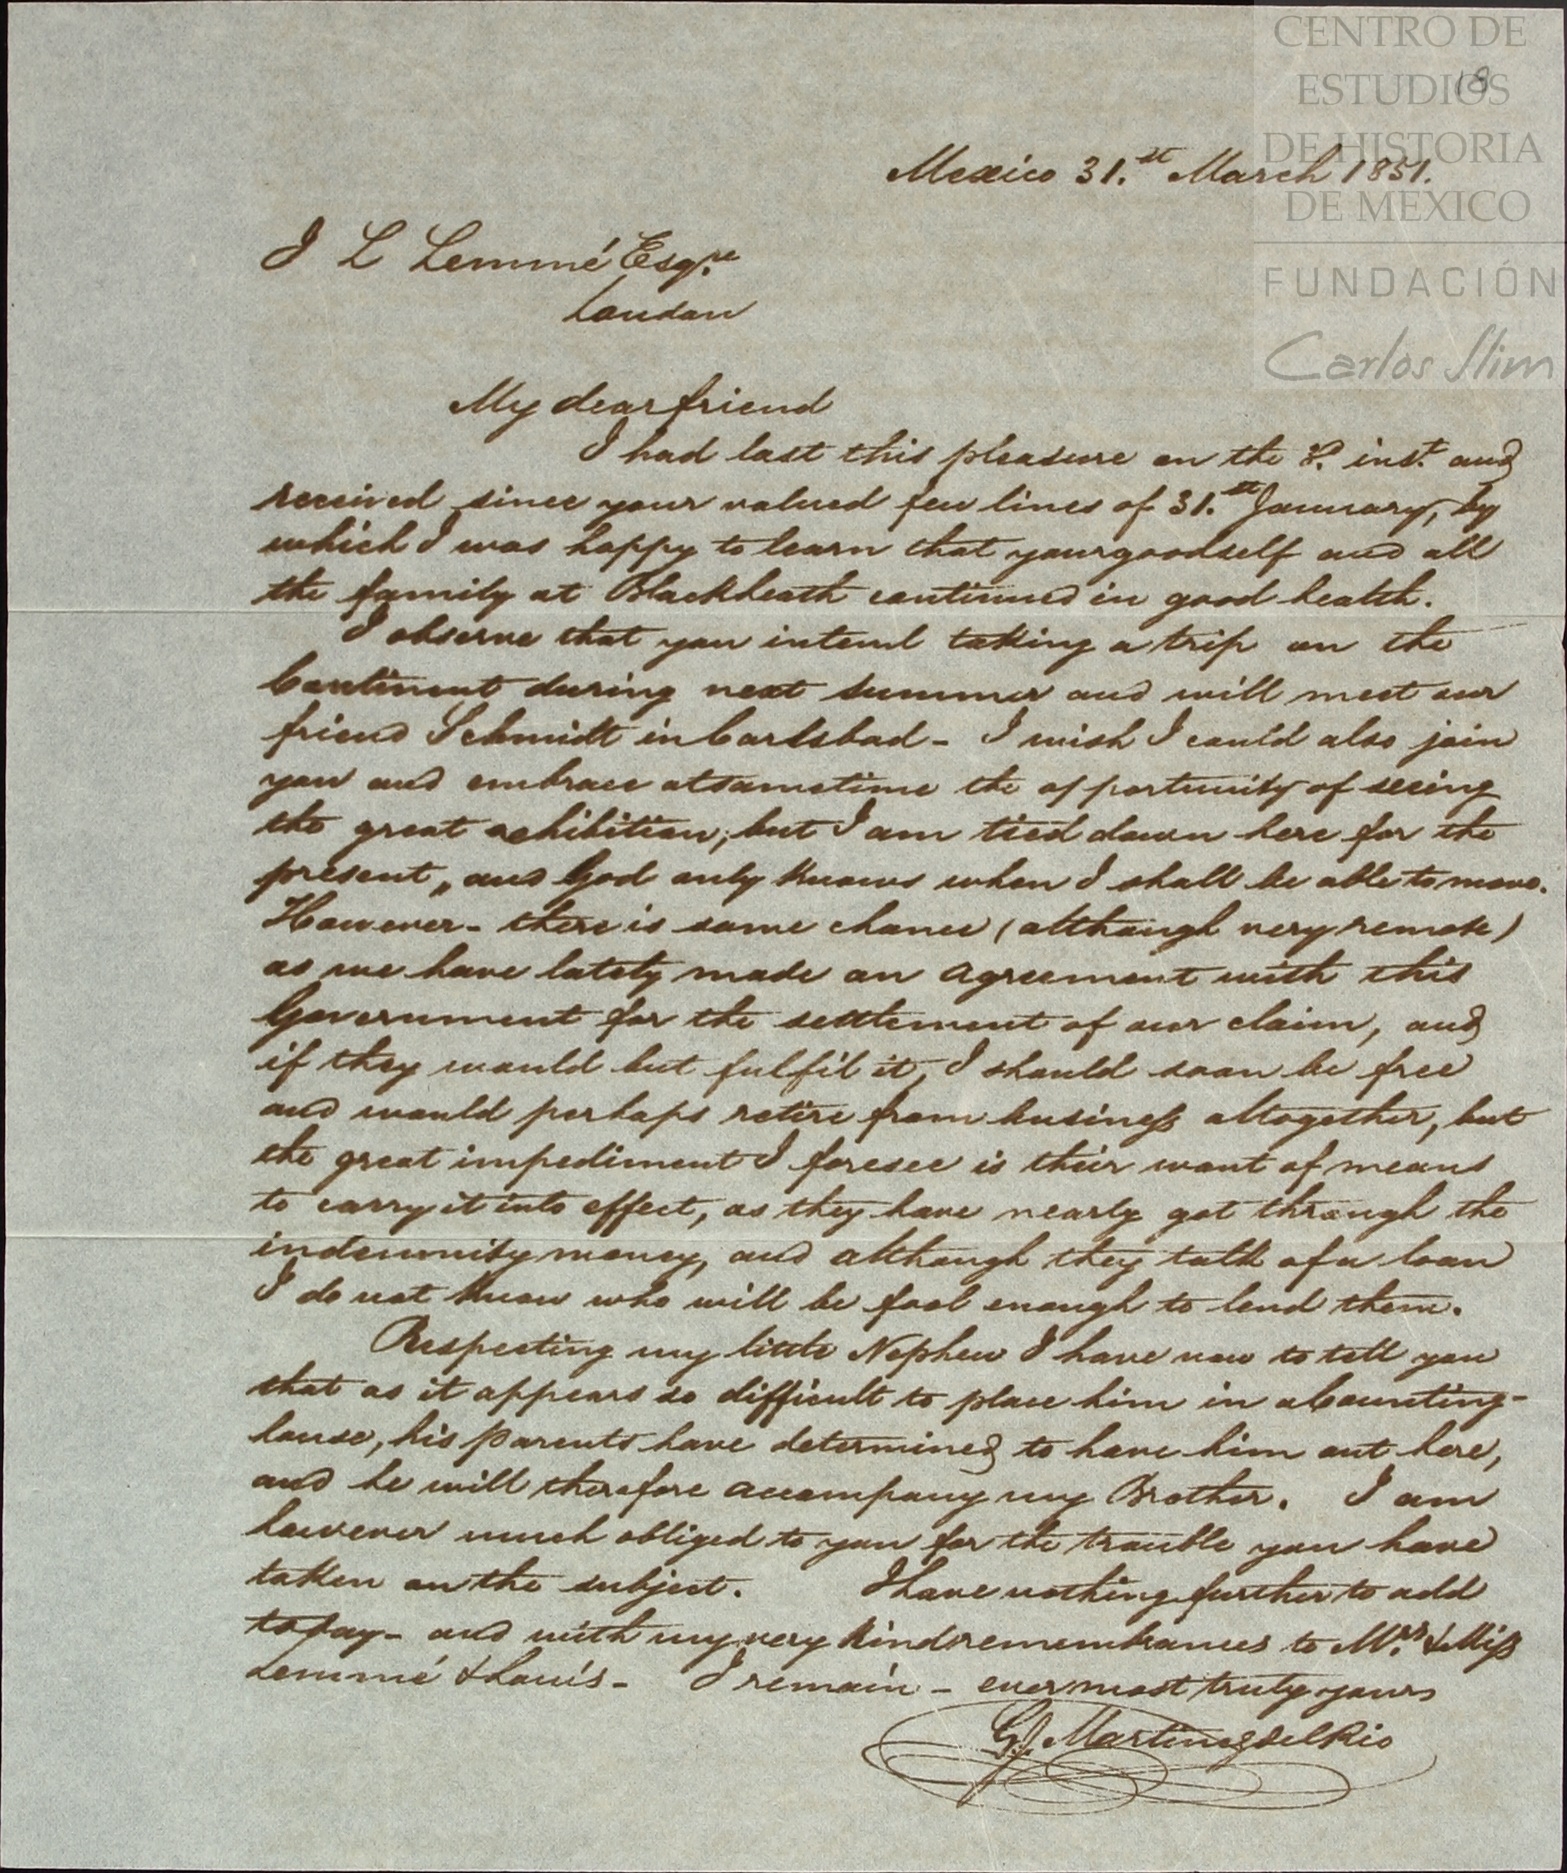 CENTRO DE
ESTUDIOS
DE HISTORIA
DE MEXICO
FUNDACIÓN
Carlos Slim
18
Mexico 31.st March 1851.
J L Lemmé Esqre.
London
My dear friend
I had last this pleasure on the 8. inst. and
received since your valued few lines of 31.st January, by
which I was happy to learn that yourgoodself and all
the family at Blackheath continued in good health.
I observe that you intend taking a trip on the
Continent during next summer and will meet our
friend Schmidt in Carlsbad - I wish I could also join
you and embrace atsametime the opportunity of seeing
the great exhibition, but I am tied down here for the
present, and God only knows when I shall be able to move.
However - there is some chance (although very remote)
as we have lately made an agreement with this
Government for the settlement of our claim, and
if they would but fulfil it, I should soon be free
and would perhaps retire from business altogether, but
the great impediment I foresee is their want of means
to carry it into effect, as they have nearly got through the
indemnity money, and although they talk of a loan
I do not know who will be fool enough to lend them.
Respecting my little Nephew I have now to tell you
that as it appears so difficult to place him in a Counting-
house, his parents have determined to have him out here,
and he will therefore accompany my Brother. I am
however much obliged to you for the trouble you have
taken on the subject. I have nothing further to add
today - and with my very kind remembrances to Mrs. & Miss
Lemmé & Louis - I remain - ever most truly yours
G. J. Martinez del Rio